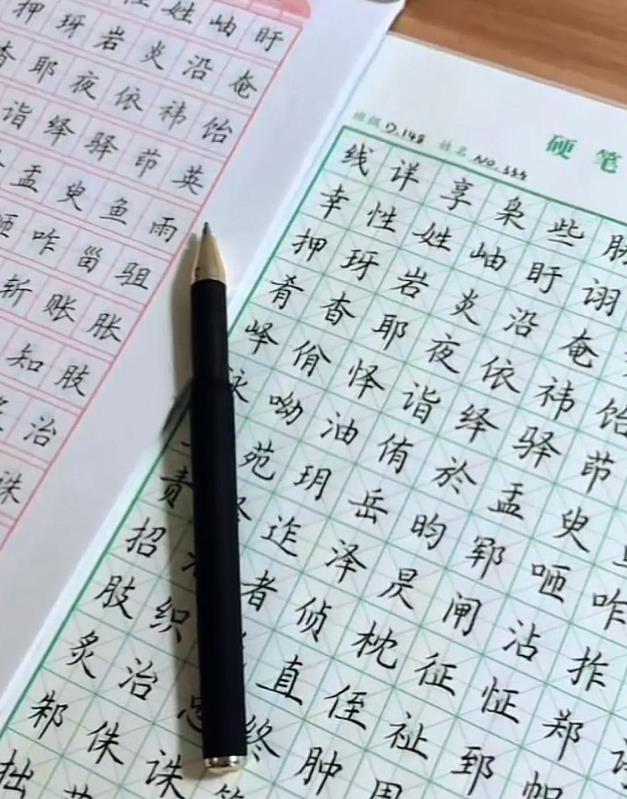 押玡岩炎沿奄
耶夜依祎饴
诣绎驿茚英
盂臾鱼雨
咂咋甾驵
斩账胀
知肢
治
诛
硬笔
班级 D.148 姓名 No.355
线详享枭些
幸性姓岫盱诩
押玡岩炎沿奄
肴杳耶夜依祎饴
峄佾怿诣绎驿茚
泳呦油侑於盂臾
苑玥岳昀郓咂咋
责迮泽昃闸沾拃
招者侦枕征怔郑
肢织直侄祉郅帜
炙治忠终肿周
邾侏诛
拙